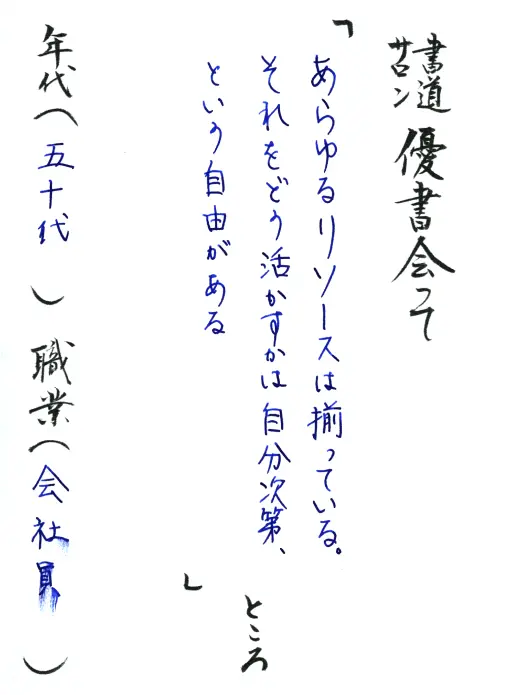 書道サロン 優書会って
「あらゆるリソースは揃っている。
それをどう活かすかは自分次第、
という自由がある
」ところ
年代(五十代)職業(会社員)